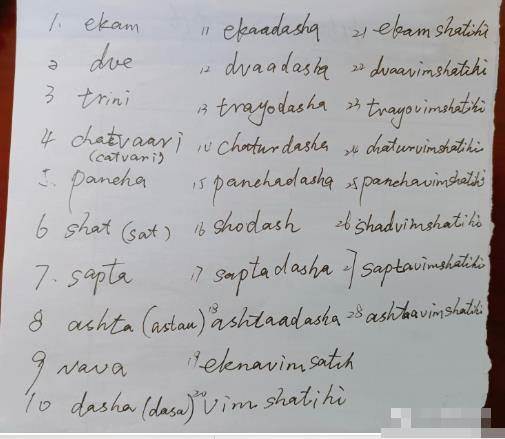 1. ekam 11 ekaadasha 21 ekamshatihi
2 dve 12 dvaadasha 22 dvaavimshatihi
3 trini 13 trayodasha 23 trayovimshatihi
4 chatvaari 14 chaturdasha 24 chaturvimshatihi
(catvari)
5. paneha 15 panehadasha 25 panehavimshatihi
6 shat (sat) 16 shodash 26 shadvimshatihi
7. sapta 17 saptadasha 27 saptavimshatihi
8 ashta (astau) 18 ashtaadasha 28 ashtaavimshatihi
9 nava 19 eknavimsatih
10 dasha (dasa) 20 vimshatihi